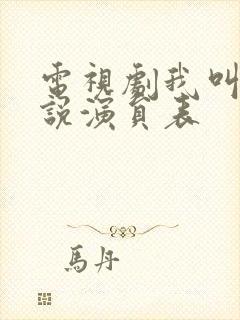 電視劇我叫
說演員表
馬丹